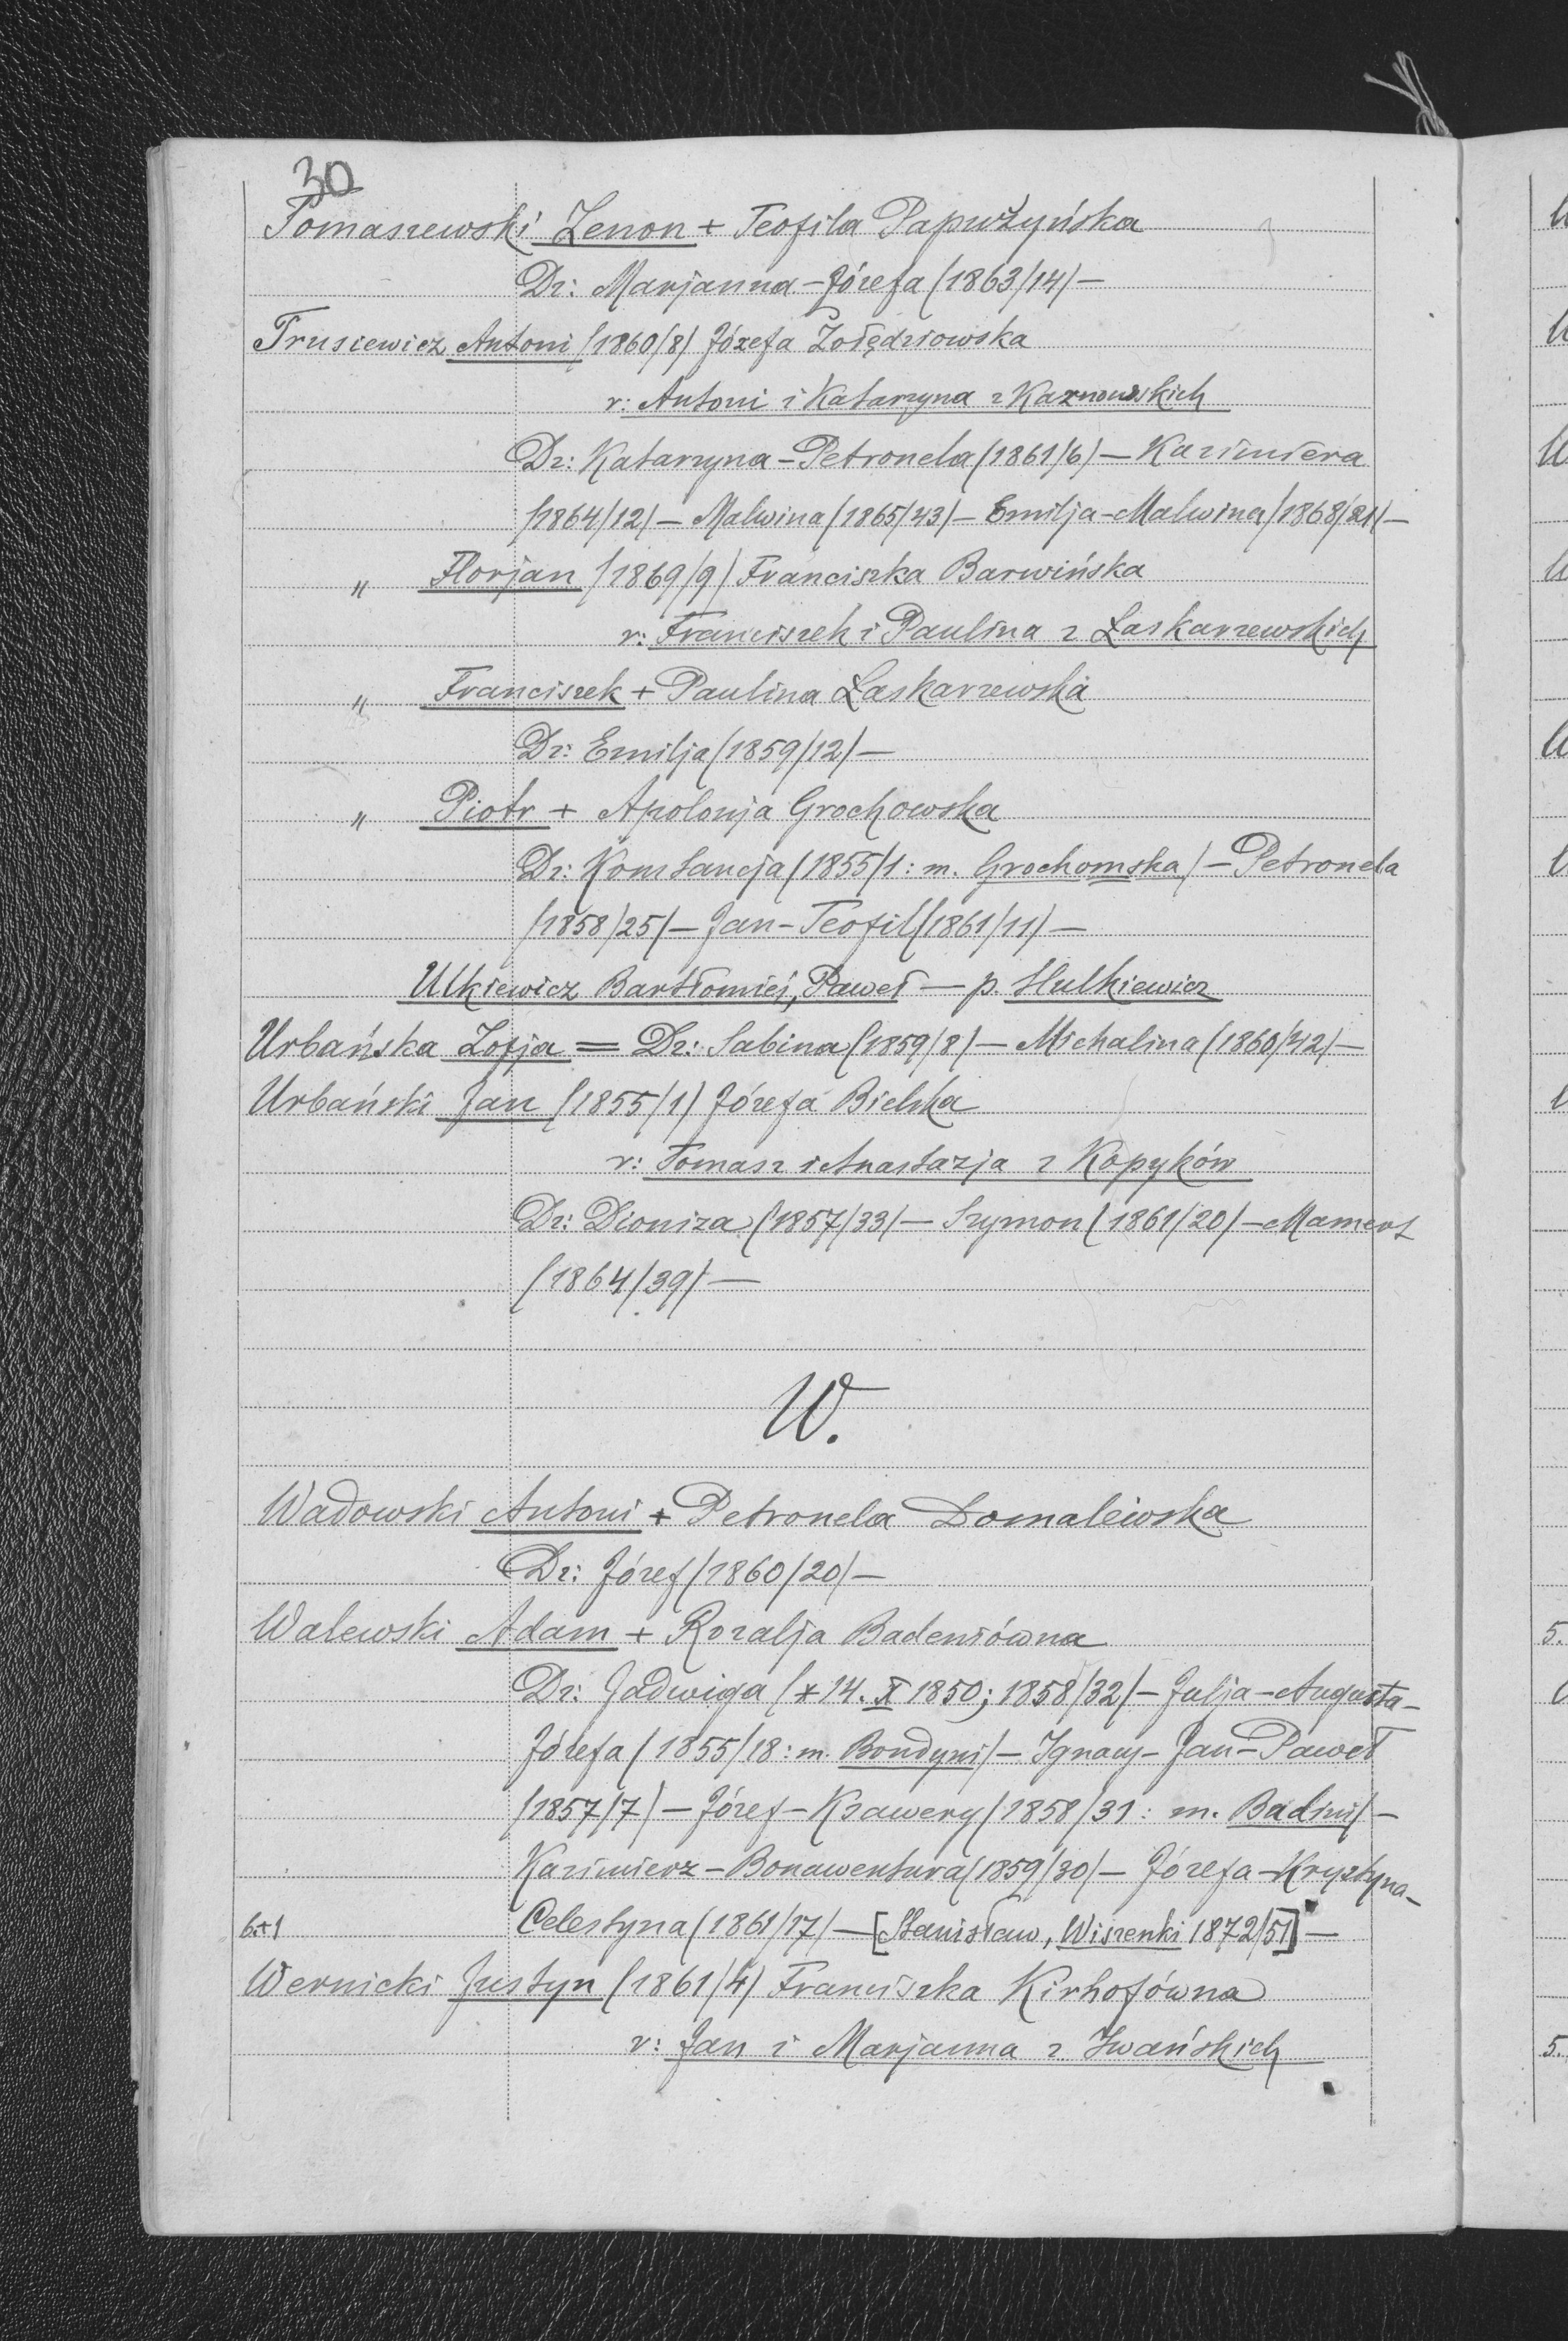 30
Tomaszewski Zenon + Teofila Papużyńska
Dz: Marjanna-Józefa (1863/14) —
Trusiewicz Antoni (1860/8) Józefa Żołędziowska
r: Antoni i Katarzyna z Kaznowskich
Dz: Katarzyna-Petronela (1861/6) — Kazimiera
(1864/12) — Malwina (1865/43) — Emilja-Malwina (1868/21) —
„ Florjan (1869/9) Franciszka Barwińska
r: Franciszek i Paulina z Łaskarzewskich
„ Franciszek + Paulina Łaskarzewska
Dz: Emilja (1859/12) —
„ Piotr + Apolonja Grochowska
Dz: Konstancja (1855/1: m. Grochomska) — Petronela
(1858/25) — Jan-Teofil (1861/11) —
Ulkiewicz Bartłomiej, Paweł — p. Hulkiewicz
Urbańska Zofja = Dz: Sabina (1859/8) — Michalina (1860/42) —
Urbański Jan (1855/1) Józefa Bielska
r: Tomasz i Anastazja z Kopyków
Dz: Dioniza (1857/33) — Szymon (1861/20) — Mamert
(1864/39) —
W.
Wadowski Antoni + Petronela Domalewska
Dz: Józef (1860/20) —
Walewski Adam + Rozalja Badeniówna
Dz: Jadwiga (* 14. X 1850; 1858/32) — Julja-Augusta-
Józefa (1855/18: m. Bondyni) — Ignacy-Jan-Paweł
(1857/7) — Józef-Ksawery (1858/31: m. Badini) —
Kazimierz-Bonawentura (1859/30) — Józefa-Krystyna-
6+1 Celestyna (1861/17) — [Stanisław, Wiszenki 1872/51] —
Wernicki Justyn (1861/4) Franciszka Kirhofówna
r: Jan i Marjanna z Iwańskich
5.
5.